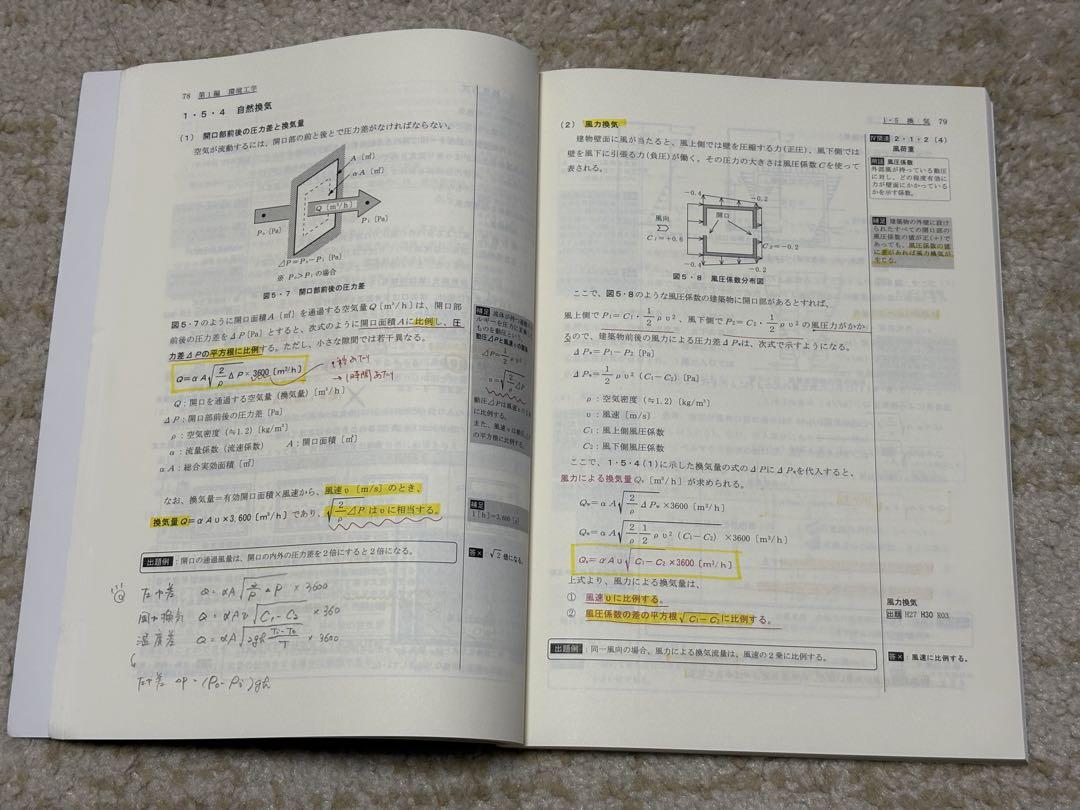 78 第1編 環境工学
1・5・4 自然換気
(1) 開口部前後の圧力差と換気量
空気が流動するには、開口部の前と後とで圧力差がなければならない。
A〔㎡〕
αA〔㎡〕
Q〔m³/h〕
P₀〔Pa〕
P₁〔Pa〕
⊿P=P₀−P₁〔Pa〕
※ P₀>P₁の場合
図5・7 開口部前後の圧力差
図5・7のように開口面積A〔㎡〕を通過する空気量Q〔m³/h〕は、開口部
前後の圧力差を⊿P〔Pa〕とすると、次式のように開口面積Aに比例し、圧
力差⊿Pの平方根に比例する。ただし、小さな隙間では若干異なる。
Q=αA√2/ρ ⊿P×3600〔m³/h〕
→1時間あたり
Q:開口を通過する空気量(換気量)〔m³/h〕
⊿P:開口部前後の圧力差〔Pa〕
ρ:空気密度(≒1.2)〔kg/m³〕
α:流量係数(流速係数) A:開口面積〔㎡〕
αA:総合実効面積〔㎡〕
なお、換気量=有効開口面積×風速から、風速υ〔m/s〕のとき、
換気量Q=αAυ×3,600〔m³/h〕であり、√2/ρ ⊿Pはυに相当する。
出題例:開口の通過風量は、開口の内外の圧力差を2倍にすると2倍になる。
補足
動圧⊿Pと風速υの関係
⊿P=1/2 ρυ²
υ=√2/ρ ⊿P
に比例する。
の平方根に比例する。
補足
答× √2倍になる。
圧力差 Q=αA√2/ρ ⊿P × 3600
風力換気 Q=αAv√C₁−C₂ ×360
温度差
× 3600
圧力差
1・5 換気 79
(2) 風力換気
建物壁面に風が当たると、風上側では壁を圧縮する力(正圧)、風下側では
壁を風下に引張る力(負圧)が働く。その圧力の大きさは風圧係数Cを使って
表される。
−0.4
−0.2
風向
開口
C₁=+0.6
C₂=−0.2
−0.4
−0.2
図5・8 風圧係数分布図
ここで、図5・8のような風圧係数の建築物に開口部があるとすれば、
風上側でP₁=C₁・1/2 ρυ²、風下側でP₂=C₂・1/2 ρυ²の風圧力がかか
るので、建築物前後の風力による圧力差⊿Pwは、次式で示すようになる。
⊿Pw=P₁−P₂〔Pa〕
⊿Pw=1/2 ρυ²(C₁−C₂)〔Pa〕
ρ:空気密度(≒1.2)〔kg/m³〕
υ:風速〔m/s〕
C₁:風上側風圧係数
C₂:風下側風圧係数
ここで、1・5・4(1)に示した換気量の式の⊿Pに⊿Pwを代入すると、
風力による換気量Qw〔m³/h〕が求められる。
Qw=αA√2/ρ ⊿Pw×3600〔m³/h〕
Qw=αA√2/ρ 1/2 ρυ²(C₁−C₂) ×3600〔m³/h〕
Qw=αAυ√C₁−C₂×3600〔m³/h〕
上式より、風力による換気量は、
① 風速υに比例する。
② 風圧係数の差の平方根√C₁−C₂に比例する。
出題例:同一風向の場合、風力による換気流量は、風速の2乗に比例する。
2・1・2(4)
風荷重
用語 風圧係数
外部風が持っている動圧
に対し、どの程度有効に
力が壁面にかかっている
かを示す係数。
補足 建築物の外壁に設け
られたすべての開口部の
風圧係数の値が正(+)で
あっても、風圧係数の値
に差があれば風力換気が
生じる。
風力換気
出題 H27 H30 R03
答×:風速に比例する。